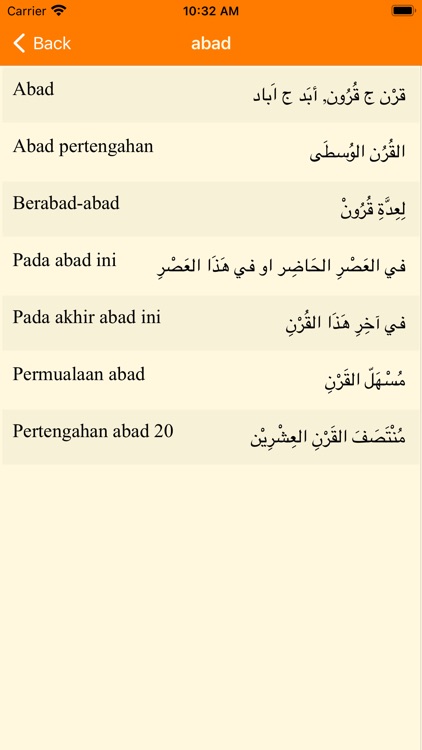 Carrier 10:32 AM
Back abad
Abad قرْن ج قُرُون, أبَد ج اَباد
Abad pertengahan القُرُن الوُسطَى
Berabad-abad لِعِدَّةِ قُرُونْ
Pada abad ini في العَصْرِ الحَاضِر او في هَذَا العَصْرِ
Pada akhir abad ini في آخِرِ هَذَا القُرْنِ
Permualaan abad مُسْهَلّ القَرْنِ
Pertengahan abad 20 مُنْتَصَفَ القَرْنِ العِشْرِيْن